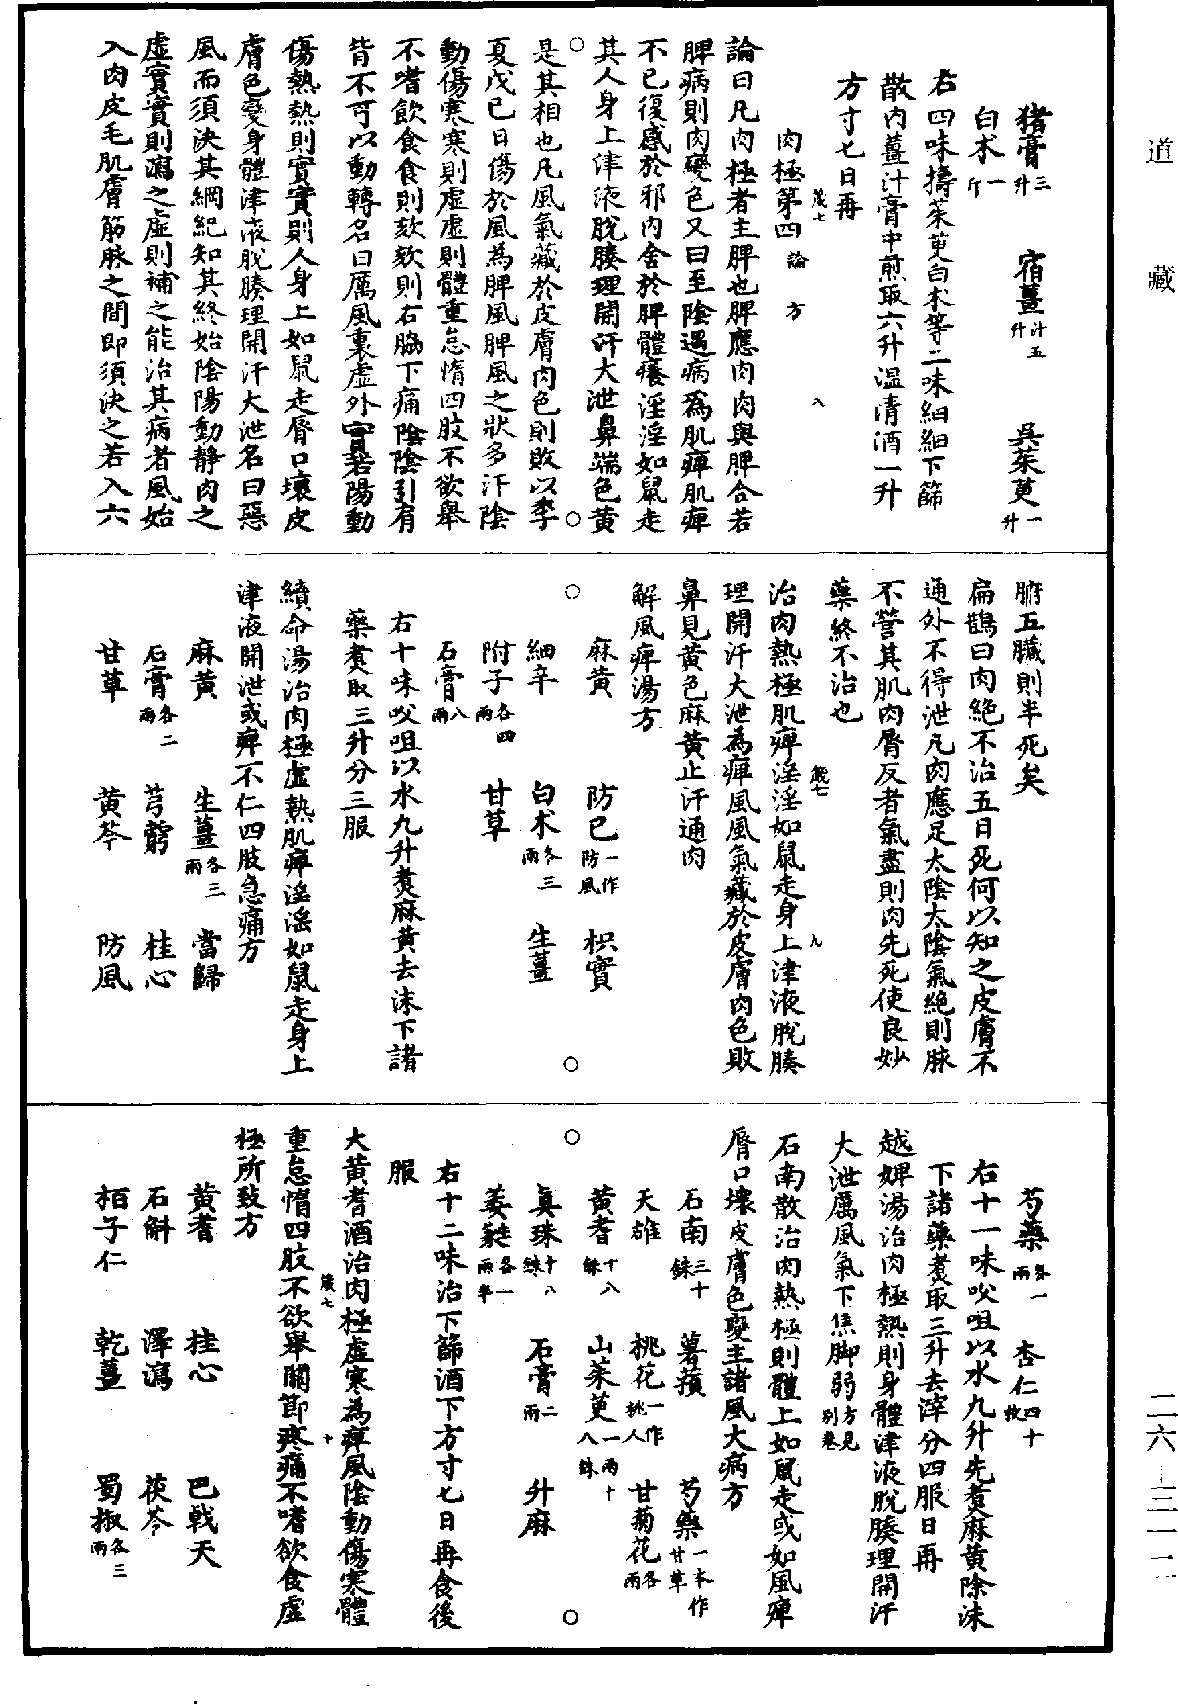 道藏
二六—三一一
猪膏三升　宿薑汁五升　吳茱萸一升
白术一斤
右四味擣茱萸白术等二味細細下篩
散內薑汁膏中煎取六升溫清酒一升
方寸匕日再
肉極第四論　方
論曰凡肉極者主脾也脾應肉肉與脾合若
脾病則肉變色又曰至陰遇病為肌痺肌痺
不已復感於邪內舍於脾體癢淫淫如鼠走
其人身上津液脫腠理開汗大泄鼻端色黃
是其相也凡風氣藏於皮膚肉色則敗以季
夏戊己日傷於風為脾風脾風之狀多汗陰
動傷寒寒則虛虛則體重怠惰四肢不欲舉
不嗜飲食食則欬欬則右脇下痛陰陰引肩
背不可以動轉名曰厲風裏虛外實若陽動
傷熱熱則實實則人身上如鼠走脣口壞皮
膚色變身體津液脫腠理開汗大泄名曰惡
風而須決其綱紀知其終始陰陽動靜肉之
虛實實則瀉之虛則補之能治其病者風始
入肉皮毛肌膚筋脉之間即須決之若入六
腑五臟則半死矣
扁鵲曰肉絕不治五日死何以知之皮膚不
通外不得泄凡肉應足太陰太陰氣絕則脉
不營其肌肉脣反者氣盡則肉先死使良妙
藥終不治也
治肉熱極肌痺淫淫如鼠走身上津液脫腠
理開汗大泄為痺風風氣藏於皮膚肉色敗
鼻見黃色麻黃止汗通肉
解風痺湯方
麻黃　防己一作防風　枳實
細辛　白术各三兩　生薑
附子各四兩　甘草
石膏八兩
右十味㕮咀以水九升煑麻黃去沫下諸
藥煑取三升分三服
續命湯治肉極虛熱肌痺淫淫如鼠走身上
津液開泄或痺不仁四肢急痛方
麻黃　生薑各三兩　當歸
石膏各二兩　芎藭　桂心
甘草　黃芩　防風
芍藥各一兩　杏仁四十枚
右十一味㕮咀以水九升先煑麻黃除沫
下諸藥煑取三升去滓分四服日再
越婢湯治肉極熱則身體津液脫腠理開汗
大泄厲風氣下焦脚弱方見別卷
石南散治肉熱極則體上如鼠走或如風痺
脣口壞皮膚色變主諸風大病方
石南三十銖　薯蕷　芍藥一本作甘草
天雄　桃花一作桃人　甘菊花各兩
黃耆十八銖　山茱萸一兩十八銖
真珠十八銖　石膏二兩　升麻
萎蕤各一兩半
右十二味治下篩酒下方寸匕日再食後
服
大黃耆酒治肉極虛寒為痺風陰動傷寒體
重怠惰四肢不欲舉關節疼痛不嗜飲食虛
極所致方
黃耆　桂心　巴戟天
石斛　澤瀉　茯苓
栢子仁　乾薑　蜀椒各三兩